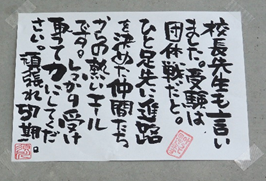 校長先生も言い
ました。受験は
団体戦だと。
ひと足先に進路
を決めた仲間たち
からの熱いエール
です。しっかり受け
取って力にしてくだ
さい。頑張れ57期。